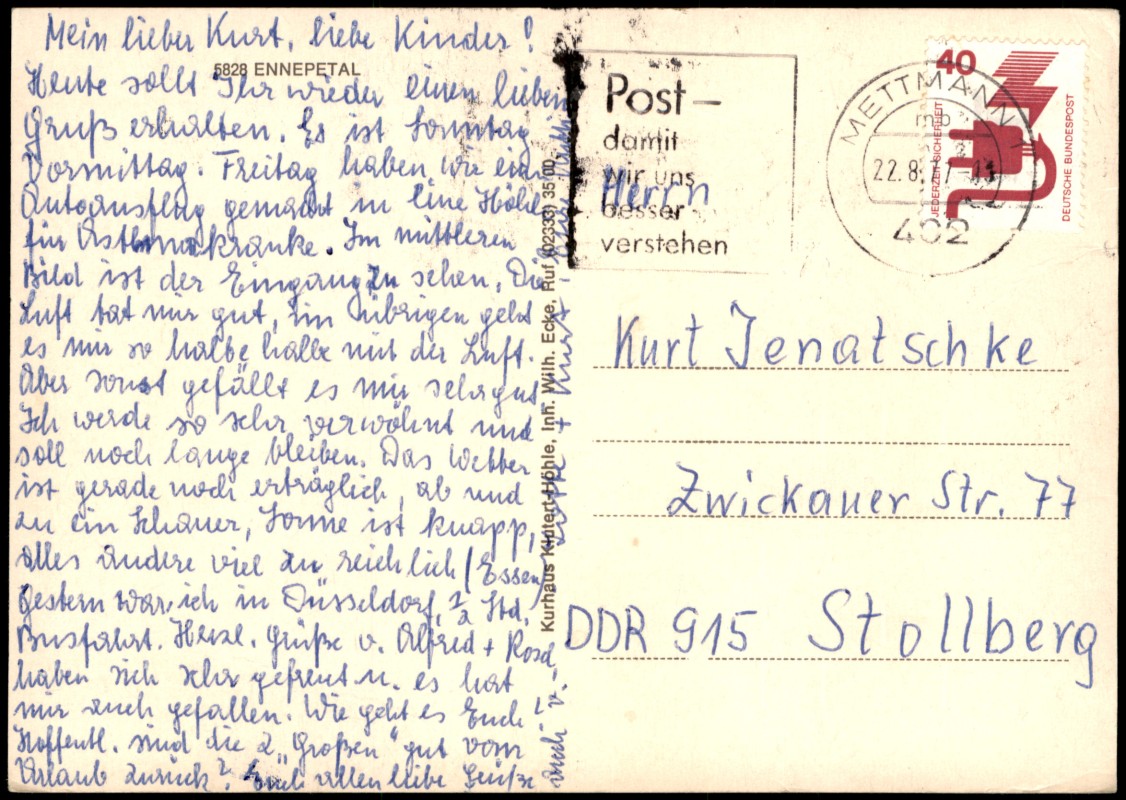 Mein lieber Kurt, liebe Kinder!
5828 ENNEPETAL
Heute sollt Ihr wieder einen lieben
Gruß erhalten. Es ist Sonntag
Vormittag. Freitag haben wir ein
Autoausflug gemacht in eine Höhle
für Asthmakranke. Im mittleren
Bild ist der Eingang zu sehen. Die
Luft tat mir gut, im übrigen geht
es mir so halbe halbe mit der Luft.
Aber sonst gefällt es mir sehr gut
Ich werde so sehr verwöhnt und
soll noch lange bleiben. Das Wetter
ist gerade noch erträglich, ab und
zu ein Schauer, Sonne ist knapp,
alles andere viel zu reichlich (Essen)
Gestern war ich in Düsseldorf, ½ Std.
Busfahrt. Herzl. Grüße v. Alfred + Rosel
haben sich sehr gefreut u. es hat
mir auch gefallen. Wie geht es Euch?
Hoffentl. sind die 2 "Großen" gut vom
Urlaub zurück? Euch allen liebe Grüße
auch v. + Kurt
Kurhaus Klutert-Höhle, Inh. Wilh. Ecke, Ruf (02333) 35 00
Post –
damit
wir uns
besser
verstehen
METTMANN 1
mb
22.8.
402
40
JEDERZEIT SICHERHEIT
DEUTSCHE BUNDESPOST
Herrn
Kurt Jenatschke
Zwickauer Str. 77
DDR 915 Stollberg